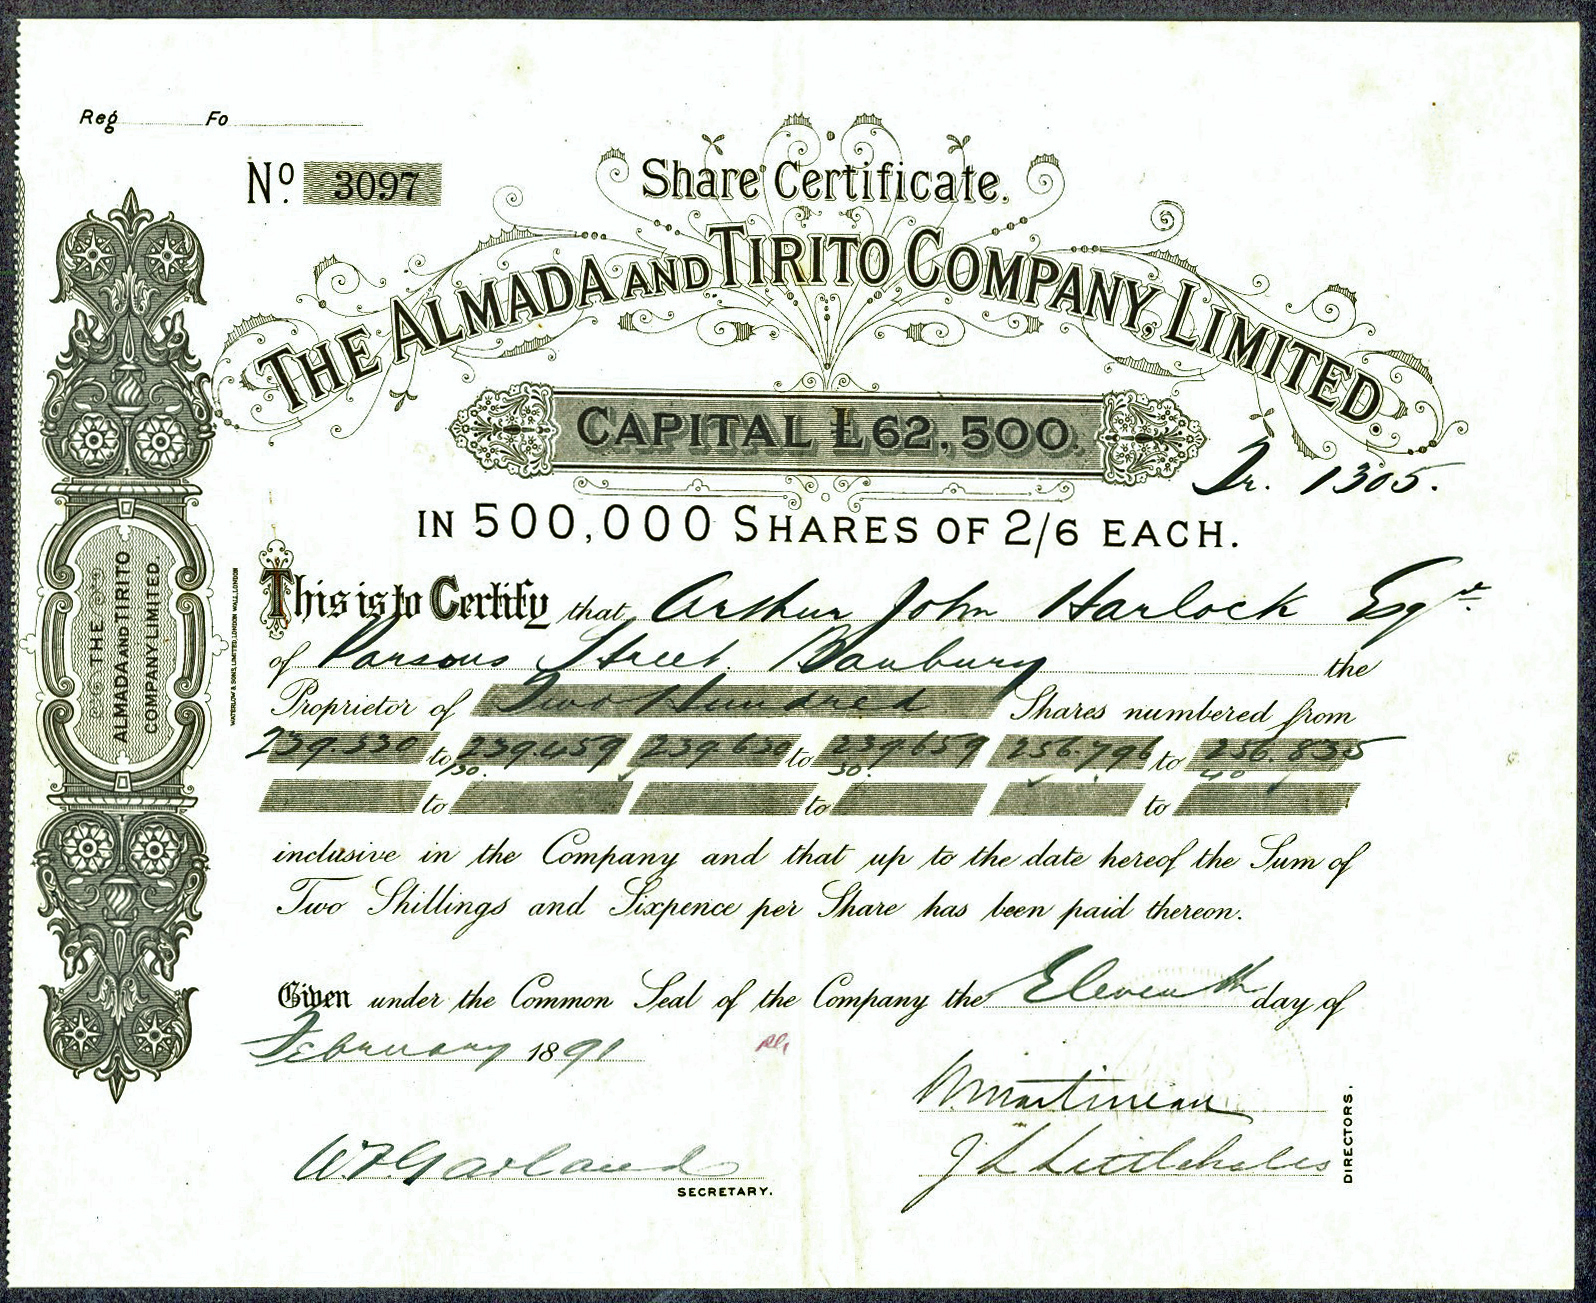 Reg Fo
No. 3097
Share Certificate.
THE ALMADA AND TIRITO COMPANY, LIMITED.
CAPITAL £62,500.
Tr. 1305.
IN 500,000 SHARES OF 2/6 EACH.
This is to Certify that Arthur John Harlock Esqre.
of Parsons Street. Banbury the
Proprietor of Two Hundred Shares numbered from
239.330 to 239.459 239.630 to 239.659 256.796 to 256.835
130. 30. 40
to to to
inclusive in the Company and that up to the date hereof the Sum of
Two Shillings and Sixpence per Share has been paid thereon.
Given under the Common Seal of the Company the Eleventh day of
February 1891
W. Martineau
J L Littlehales
DIRECTORS.
W. F. Garland
SECRETARY.
THE
ALMADA AND TIRITO
COMPANY, LIMITED.
WATERLOW & SONS, LIMITED, LONDON WALL, LONDON